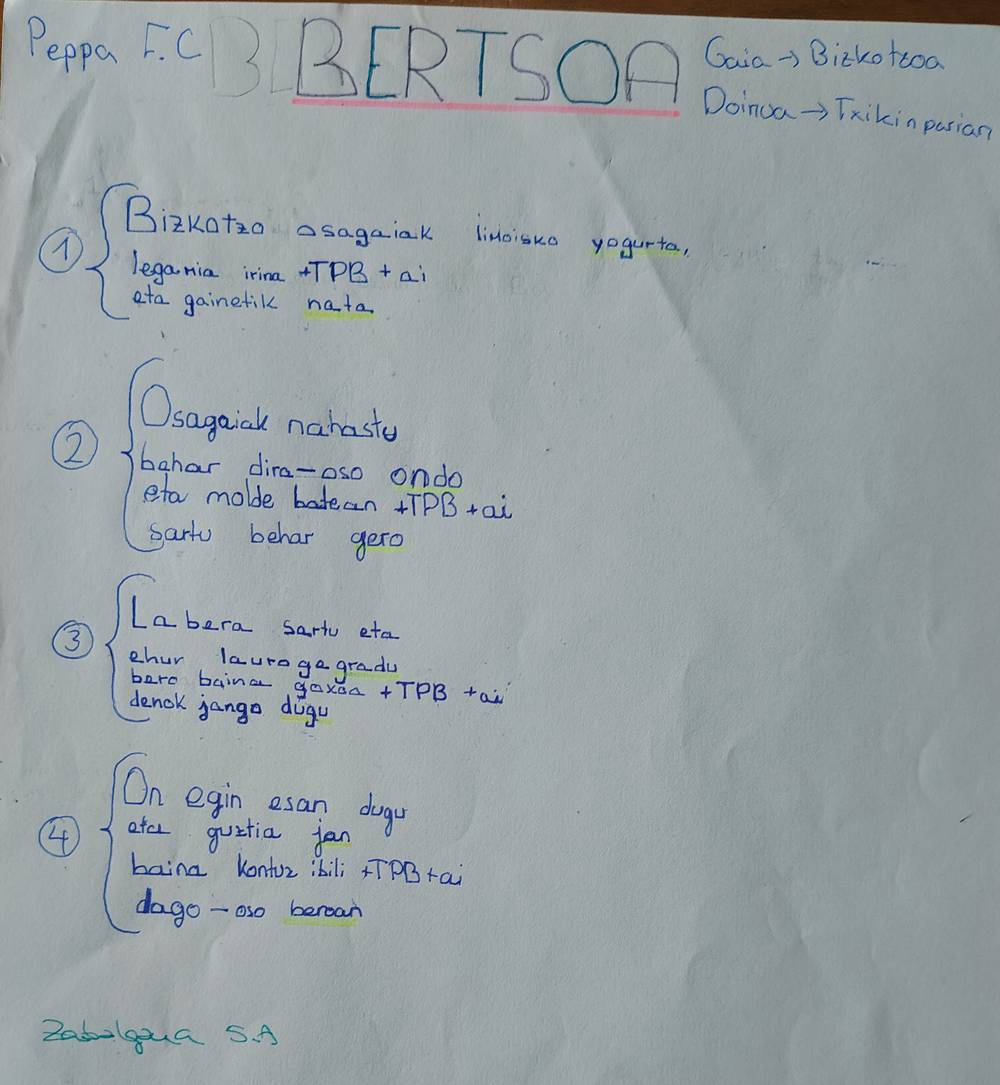 Peppa F.C BERTSOA
Gaia → Bizkotzoa
Doinua → Txikin parian
1 Bizkotzo osagaiak limoisko yogurta,
legamia irina +TPB + ai
eta gainetik nata
2 Osagaiak nahastu
behar dira-oso ondo
eta molde batean +TPB + ai
sartu behar gero
3 Labera sartu eta
ehur lauroge gradu
bero baina goxoa +TPB + ai
denok jango dugu
4 On egin esan dugu
eta guztia jan
baina kontuz ibili +TPB + ai
dago - oso beroan
Zabalgana S.A